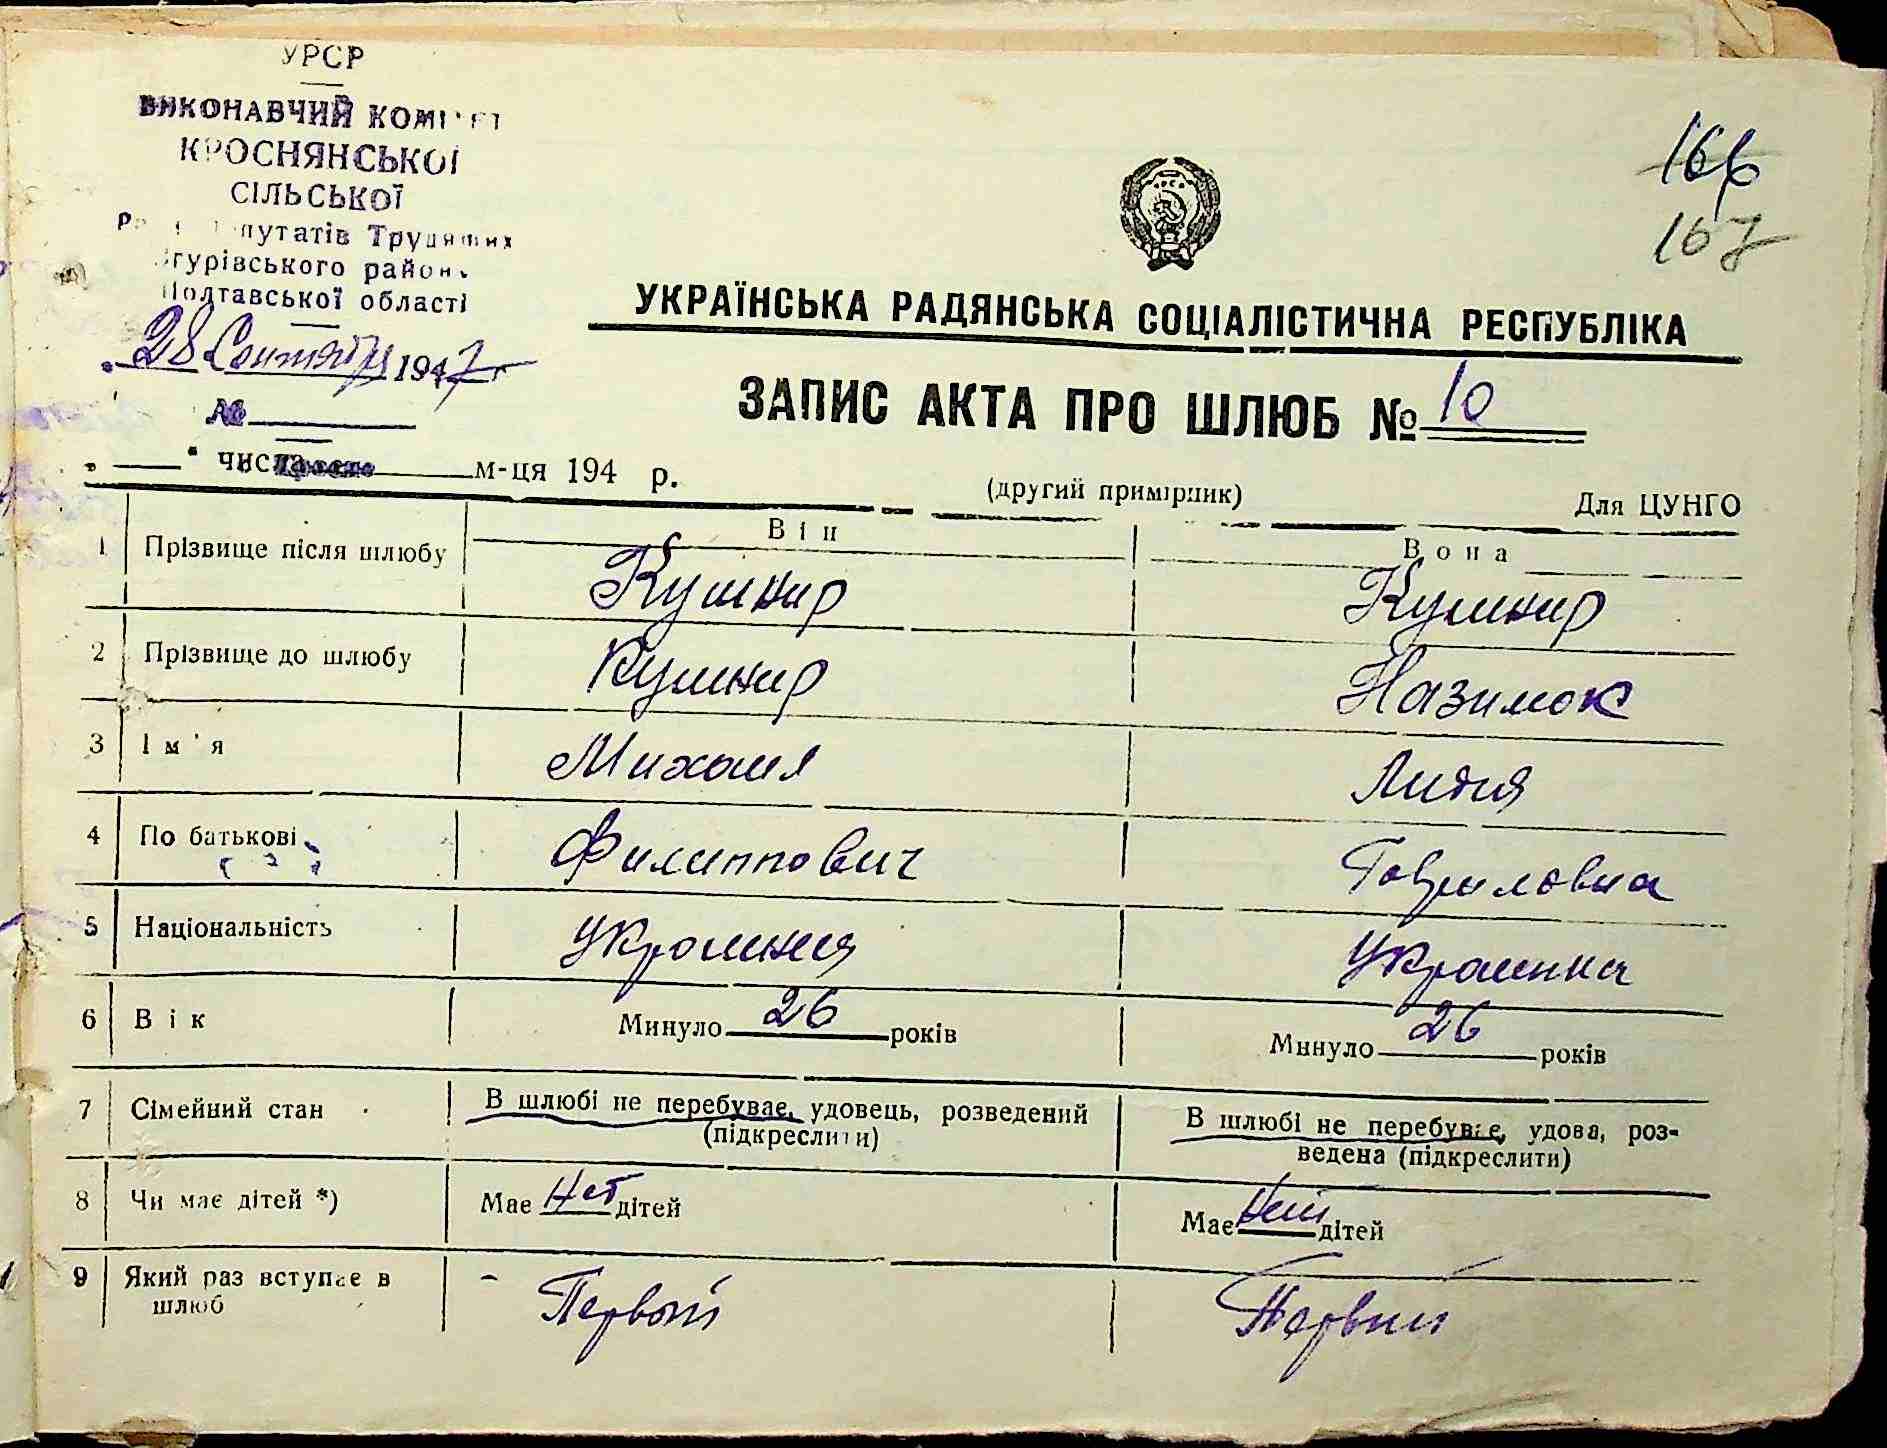 УРСР
ВИКОНАВЧИЙ КОМІТЕТ
КРОСНЯНСЬКОЇ
СІЛЬСЬКОЇ
путатів Трудящих
гурівського району
Полтавської області
28 Сентября 1947 г
№
166
167
УРСР
УКРАЇНСЬКА РАДЯНСЬКА СОЦІАЛІСТИЧНА РЕСПУБЛІКА
ЗАПИС АКТА ПРО ШЛЮБ № 10
" " числа м-ця 194 р.
(другий примірник)
Для ЦУНГО
Він Вона
1 Прізвище після шлюбу Кушнир Кушнир
2 Прізвище до шлюбу Кушнир Назимок
3 Ім'я Михаил Лидия
4 По батькові Филиппович Гавриловна
5 Національність Украинец Украинка
6 Вік Минуло 26 років Минуло 26 років
7 Сімейний стан В шлюбі не перебуває, удовець, розведений В шлюбі не перебуває, удова, роз-
(підкреслити) ведена (підкреслити)
8 Чи має дітей *) Має Нет дітей Має Нет дітей
9 Який раз вступає в Первый Первый
шлюб